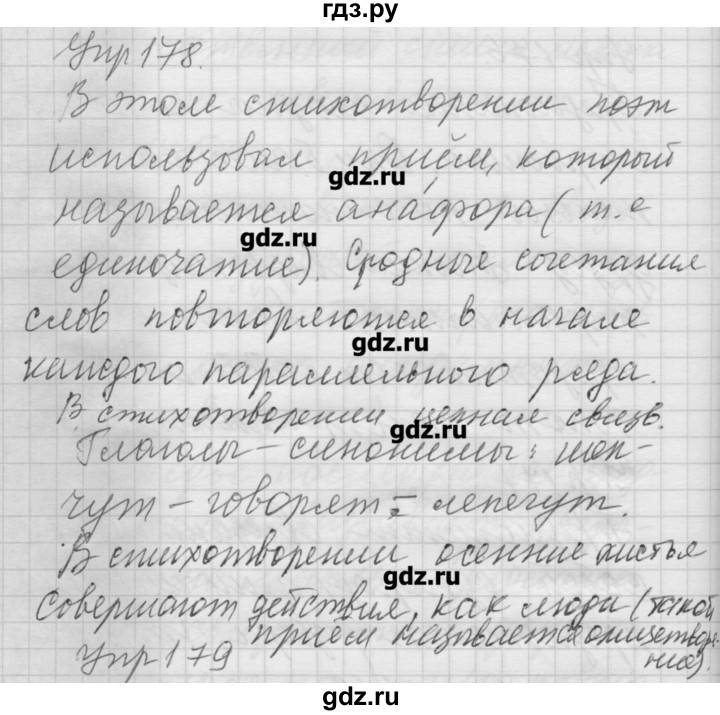 гдз.ру
Упр 178.
В этом стихотворении поэт
использовал приём, который
gdz.ru
называется ана́фора (т.е
gdz.ru
единочатие). Сродные сочетания
слов повторяются в начале
gdz.ru
каждого параллельного ряда.
В стихотворении цепная связь.
gdz.ru
Глаголы – синонимы: шеп-
чут – говорят – лепечут.
В стихотворении осенние листья
gdz.ru
совершают действия, как люди (такой
приём называется олицетворе-
ние).
Упр 179
gdz.ru